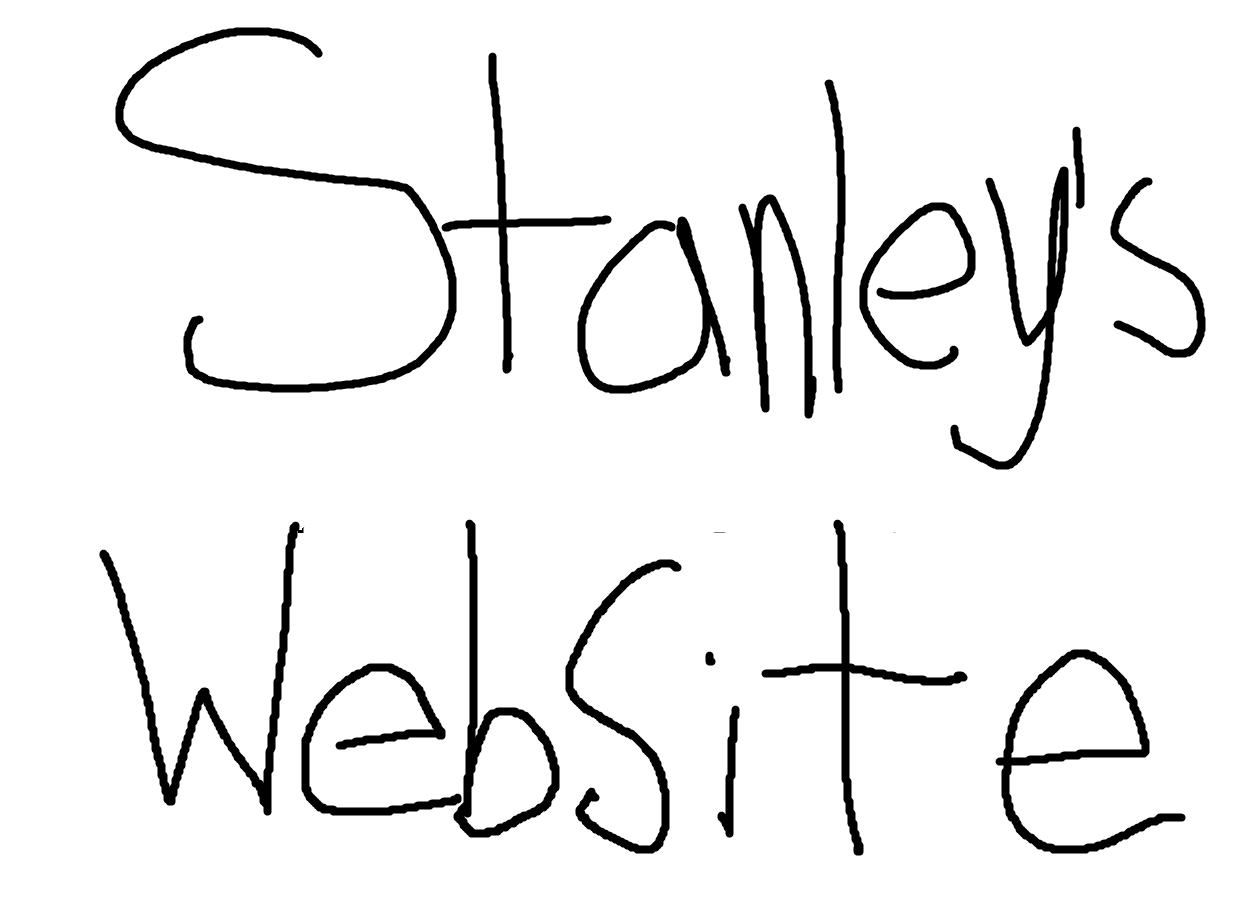 Stanley's
Website